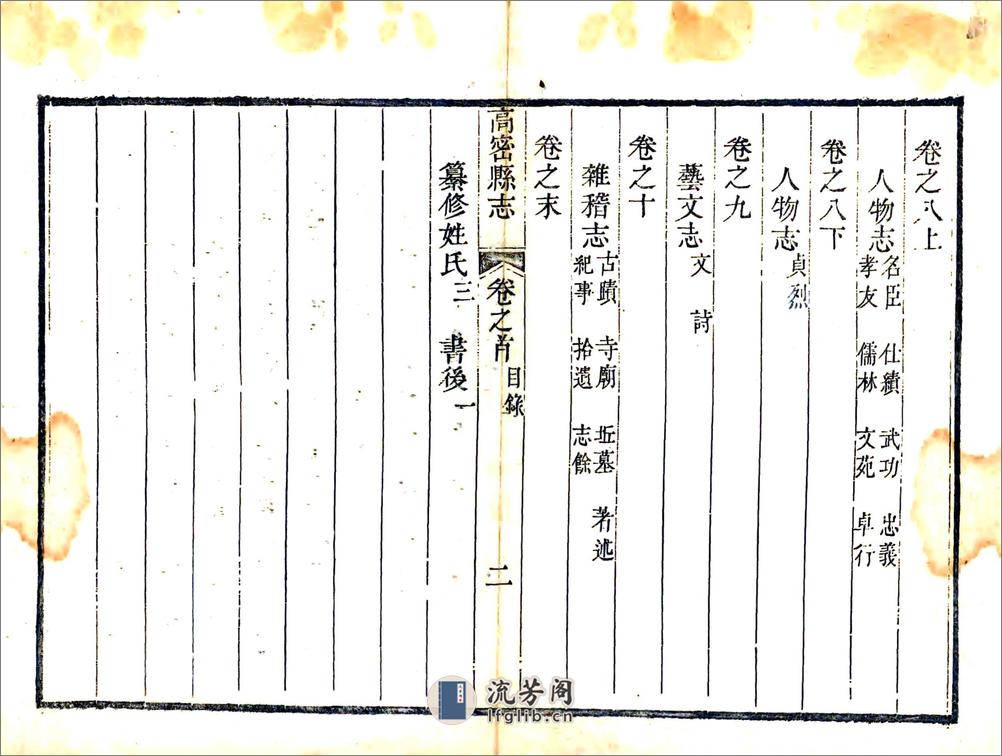 卷之八上
人物志 名臣 仕績 武功 忠義
孝友 儒林 文苑 卓行
卷之八下
人物志 貞烈
卷之九
藝文志 文 詩
卷之十
雜稽志 古蹟 寺廟 丘墓 著述
紀事 拾遺 志餘
卷之末
高密縣志 卷之首 目錄 二
纂修姓氏三 書後一
流芳阁
lfglib.cn